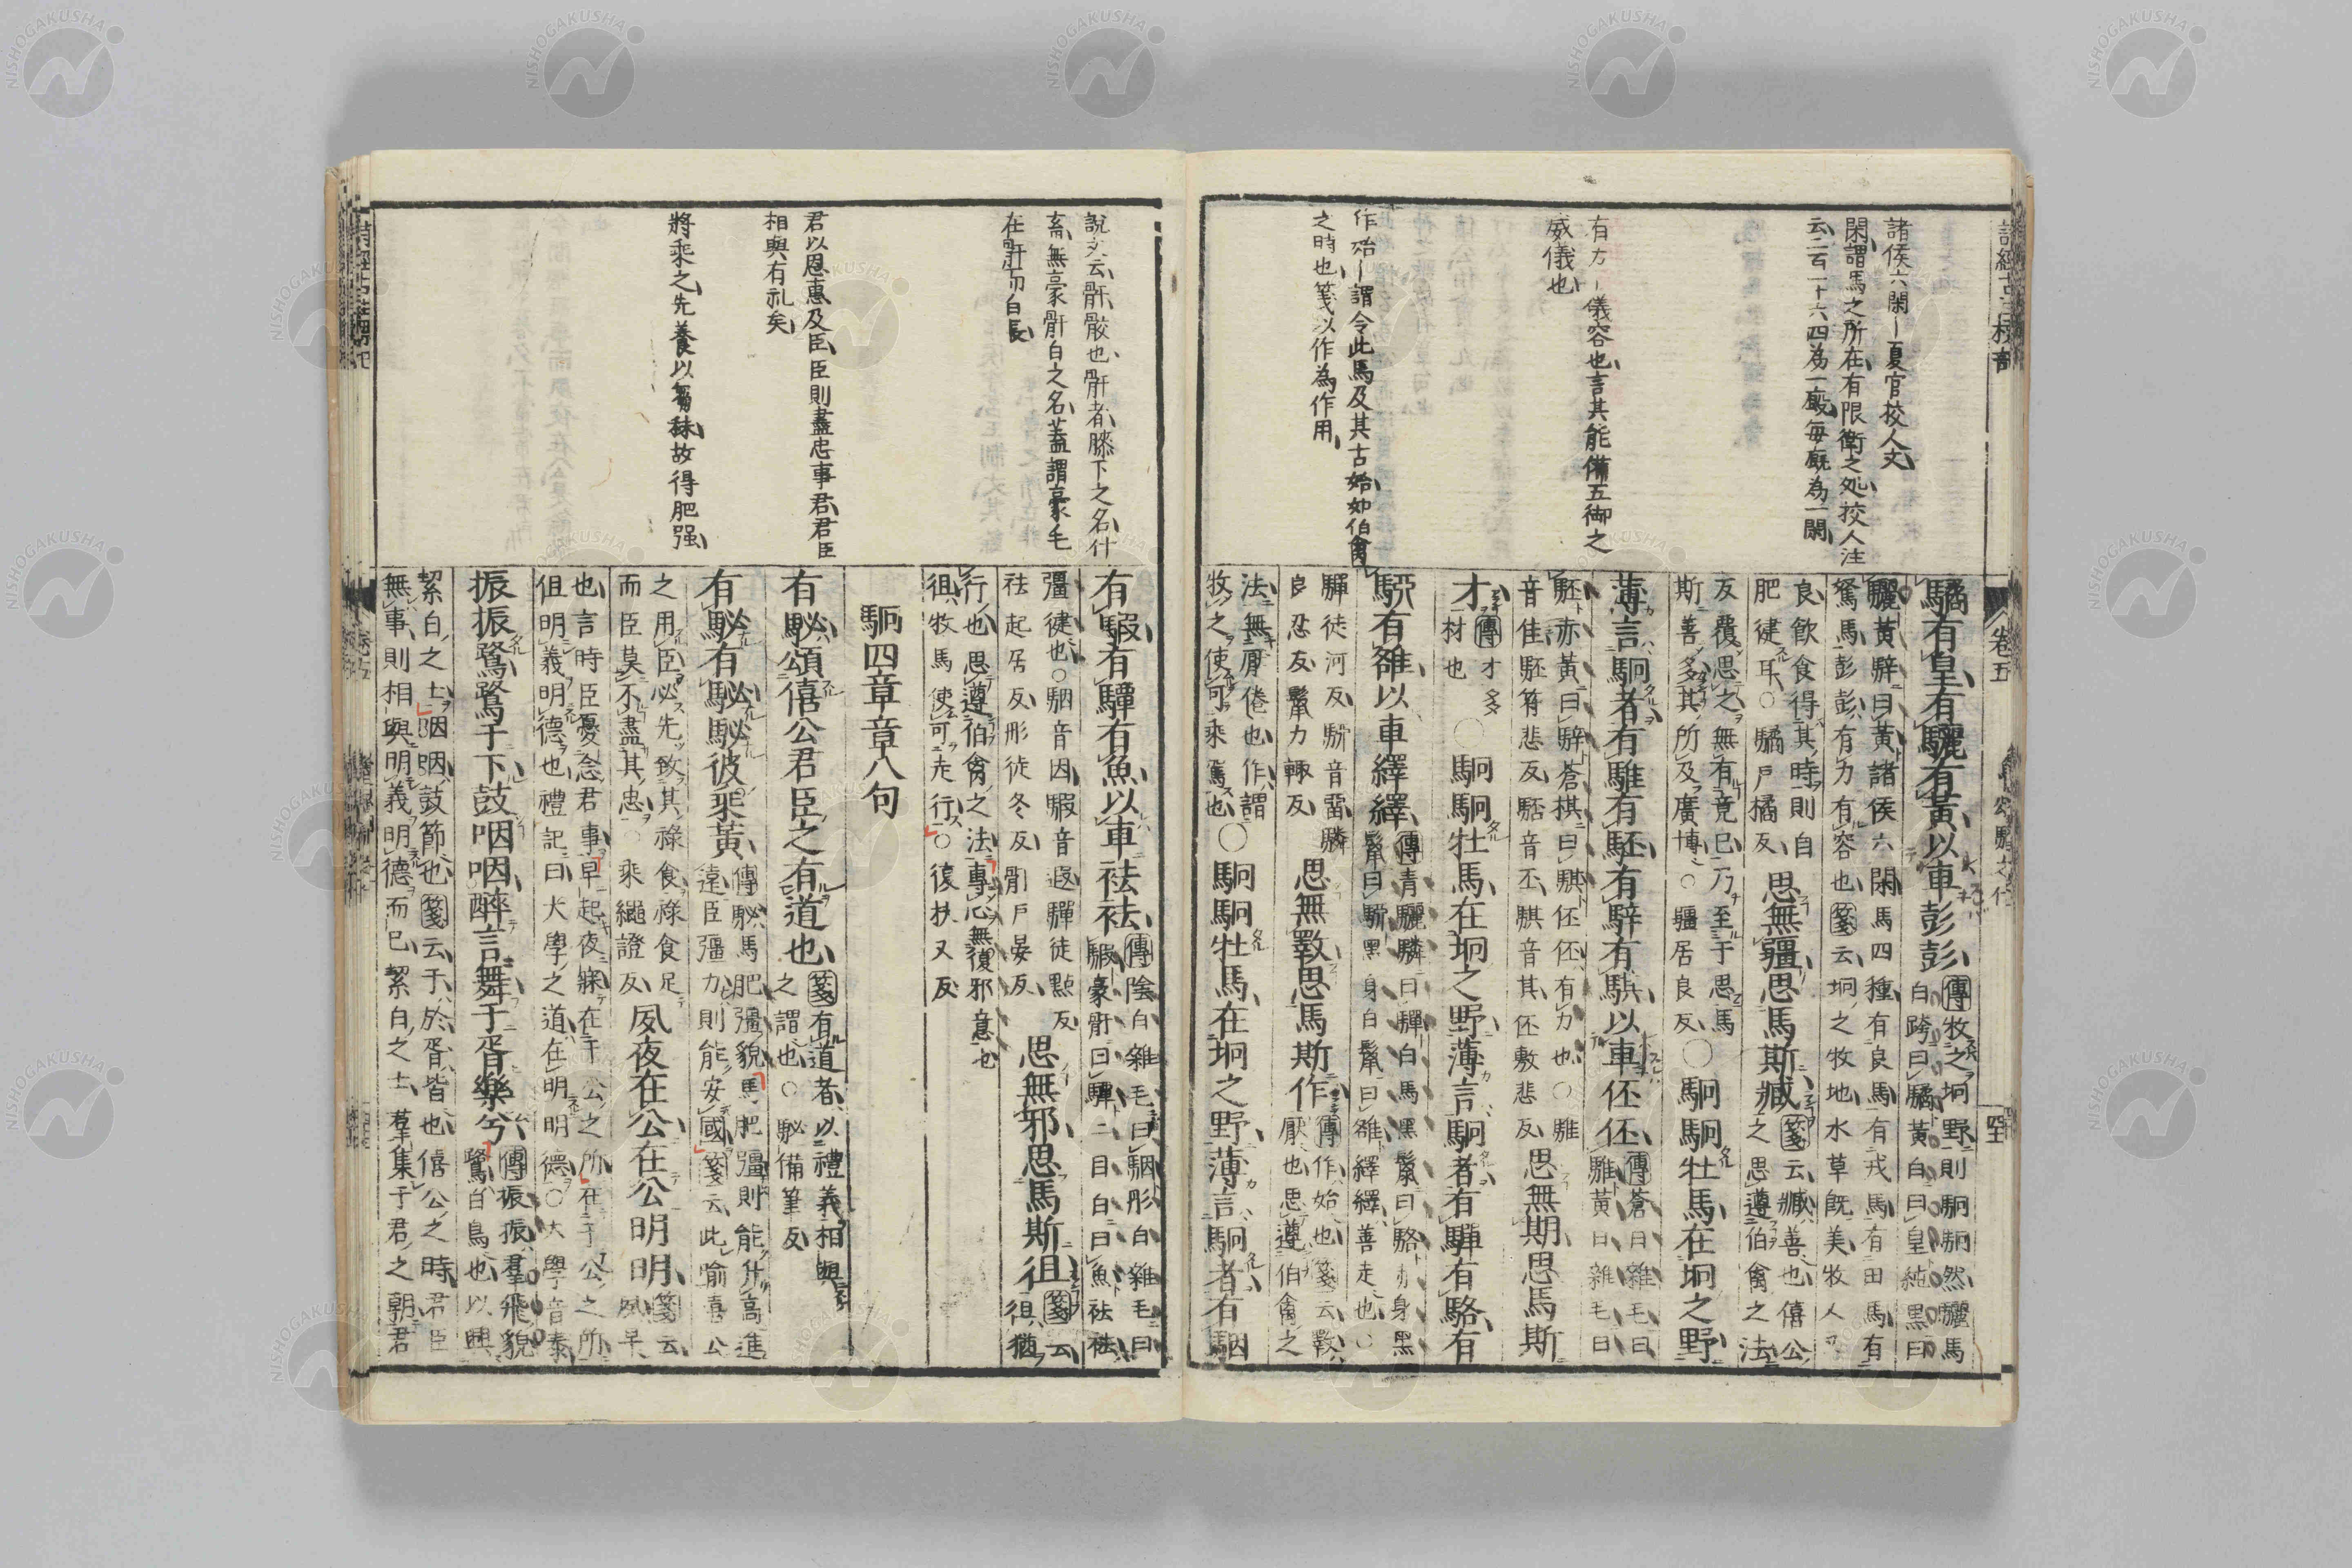 諸侯六閑ー夏官校人文
閑謂馬之所在有限衛之処挍人注
云二百一十六匹為一廄每廄為一閑
有方ー儀容也言其能備五御之
威儀也
作始ー謂令此馬及其古始如伯禽
之時也箋以作為作用
卷五
驈有皇有驪有黃以車彭彭
傳牧之坰野則駉駉然驪馬
白跨曰驈黃白曰皇純黑曰
驪黃騂曰黃諸侯六閑馬四種有良馬有戎馬有田馬有
駑馬彭彭有力有容也箋云坰之牧地水草旣美牧人
良飮食得其時則自
肥徤耳○驈戸橘反
思無疆思馬斯臧
箋云臧善也僖公
之思遵伯禽之法
反覆思之無有竟已乃至于思馬
斯善多其所及廣博○疆居良反
○駉駉牡馬在坰之野
薄言駉者有騅有駓有騂有騏以車伾伾
傳蒼白雜毛曰
騅黃白雜毛曰
駓赤黃曰騂蒼棋曰騏伾伾有力也○騅
音隹駓符悲反駓音丕騏音其伾敷悲反
思無期思馬斯
才
傳才多
材也
○駉駉牡馬在坰之野薄言駉者有驒有駱有
駵有雒以車繹繹
傳青驪驎曰驒白馬黑鬣曰駱赤身黑
鬣曰駵黑身白鬣曰雒繹繹善走也○
驒徒河反駵音留驎
良忍反鬣力輒反
思無斁思馬斯作
傳作始也箋云斁
厭也思遵伯禽之
法無厭倦也作謂
牧之使可乘駕也
○駉駉牡馬在坰之野薄言駉者有駰
說文云骭骸也骭者膝下之名什
畜無豪骭白之名蓋謂豪毛
在骭而白長
君以恩惠及臣臣則盡忠事君君臣
相與有礼矣
將乘之先養以芻秣故得肥强
有騢有驔有魚以車祛祛
傳陰白雜毛曰駰彤白雜毛曰
騢豪骭曰驔二目白曰魚祛祛
彊徤也○駰音因騢音遐驔徒點反
祛起居反彤徒冬反骭戸晏反
思無邪思馬斯徂
箋云
徂猶
行也思遵伯禽之法專心無復邪意也
徂牧馬使可走行○復扶又反
駉四章章八句
有駜頌僖公君臣之有道也
箋有道者以禮義相與
之謂也○駜備筆反
有駜有駜駜彼乘黃
傳駜馬肥彊貌馬肥彊則能升高進
遠臣彊力則能安國箋云此喻僖公
之用臣必先致其祿食祿食足
而臣莫不盡其忠○乘繩證反
夙夜在公在公明明
箋云
夙早
也言時臣憂念君事早起夜寐在于公之所在于公之所
但明義明德也禮記曰大學之道在明明德○大學音泰
振振鷺鷺于下鼓咽咽醉言舞于胥樂兮
傳振振羣飛貌
鷺白鳥也以興
絜白之士咽咽鼓節也箋云于於胥皆也僖公之時君臣
無事則相與明義明德而已絜白之士羣集于君之朝君